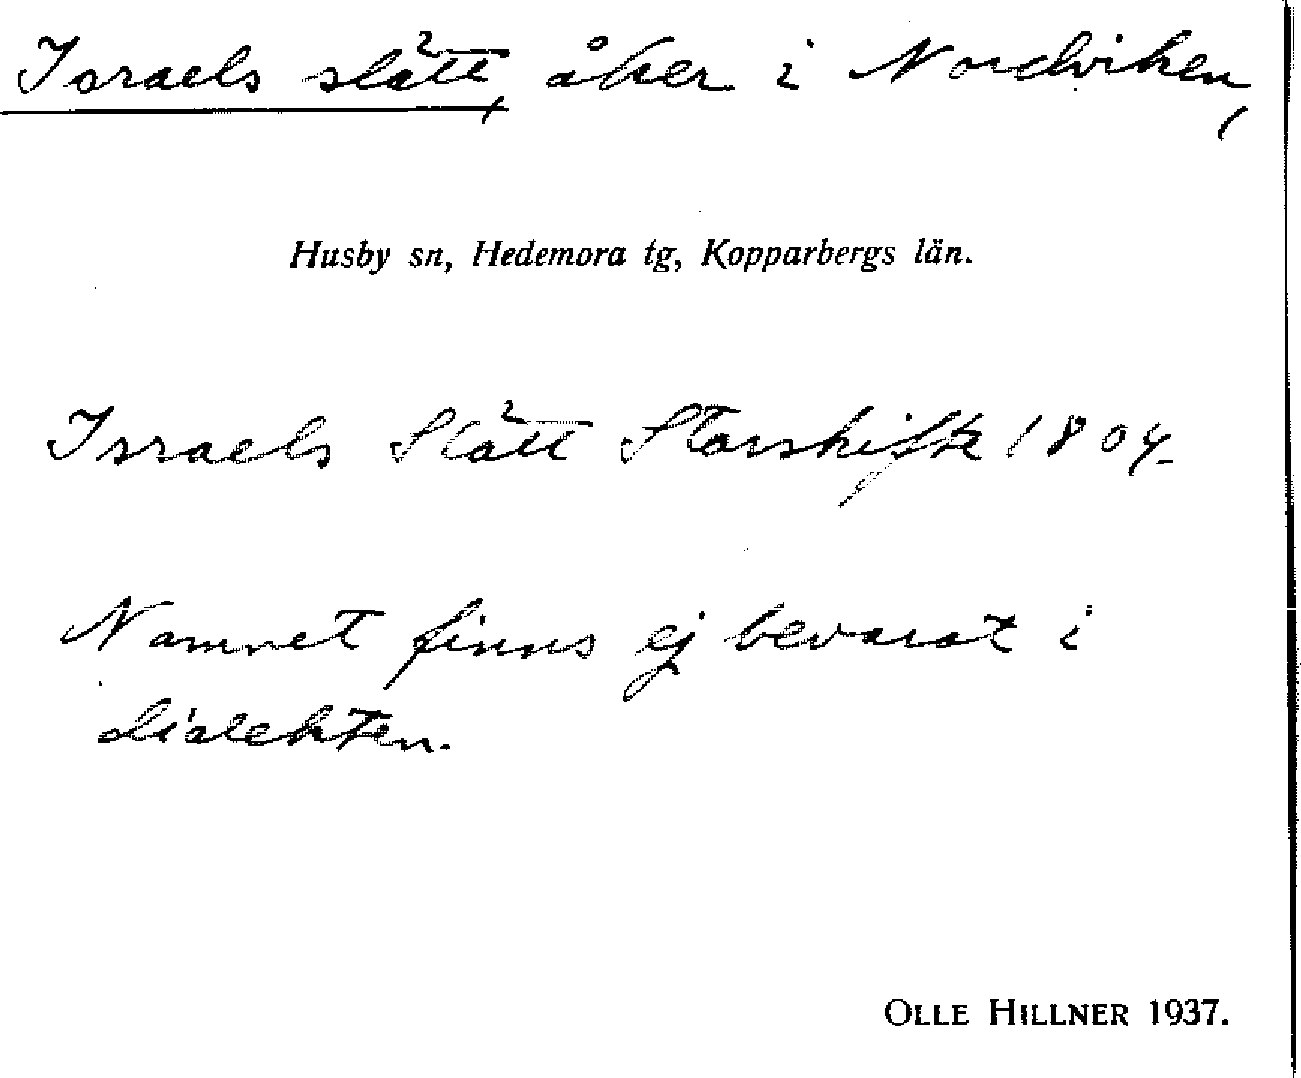 Israels slätt, åker i Nordviken,
Husby sn, Hedemora tg, Kopparbergs län.
Israels Slätt Storskifte 1804.
Namnet finns ej bevarat i
dialekten.
OLLE HILLNER 1937.